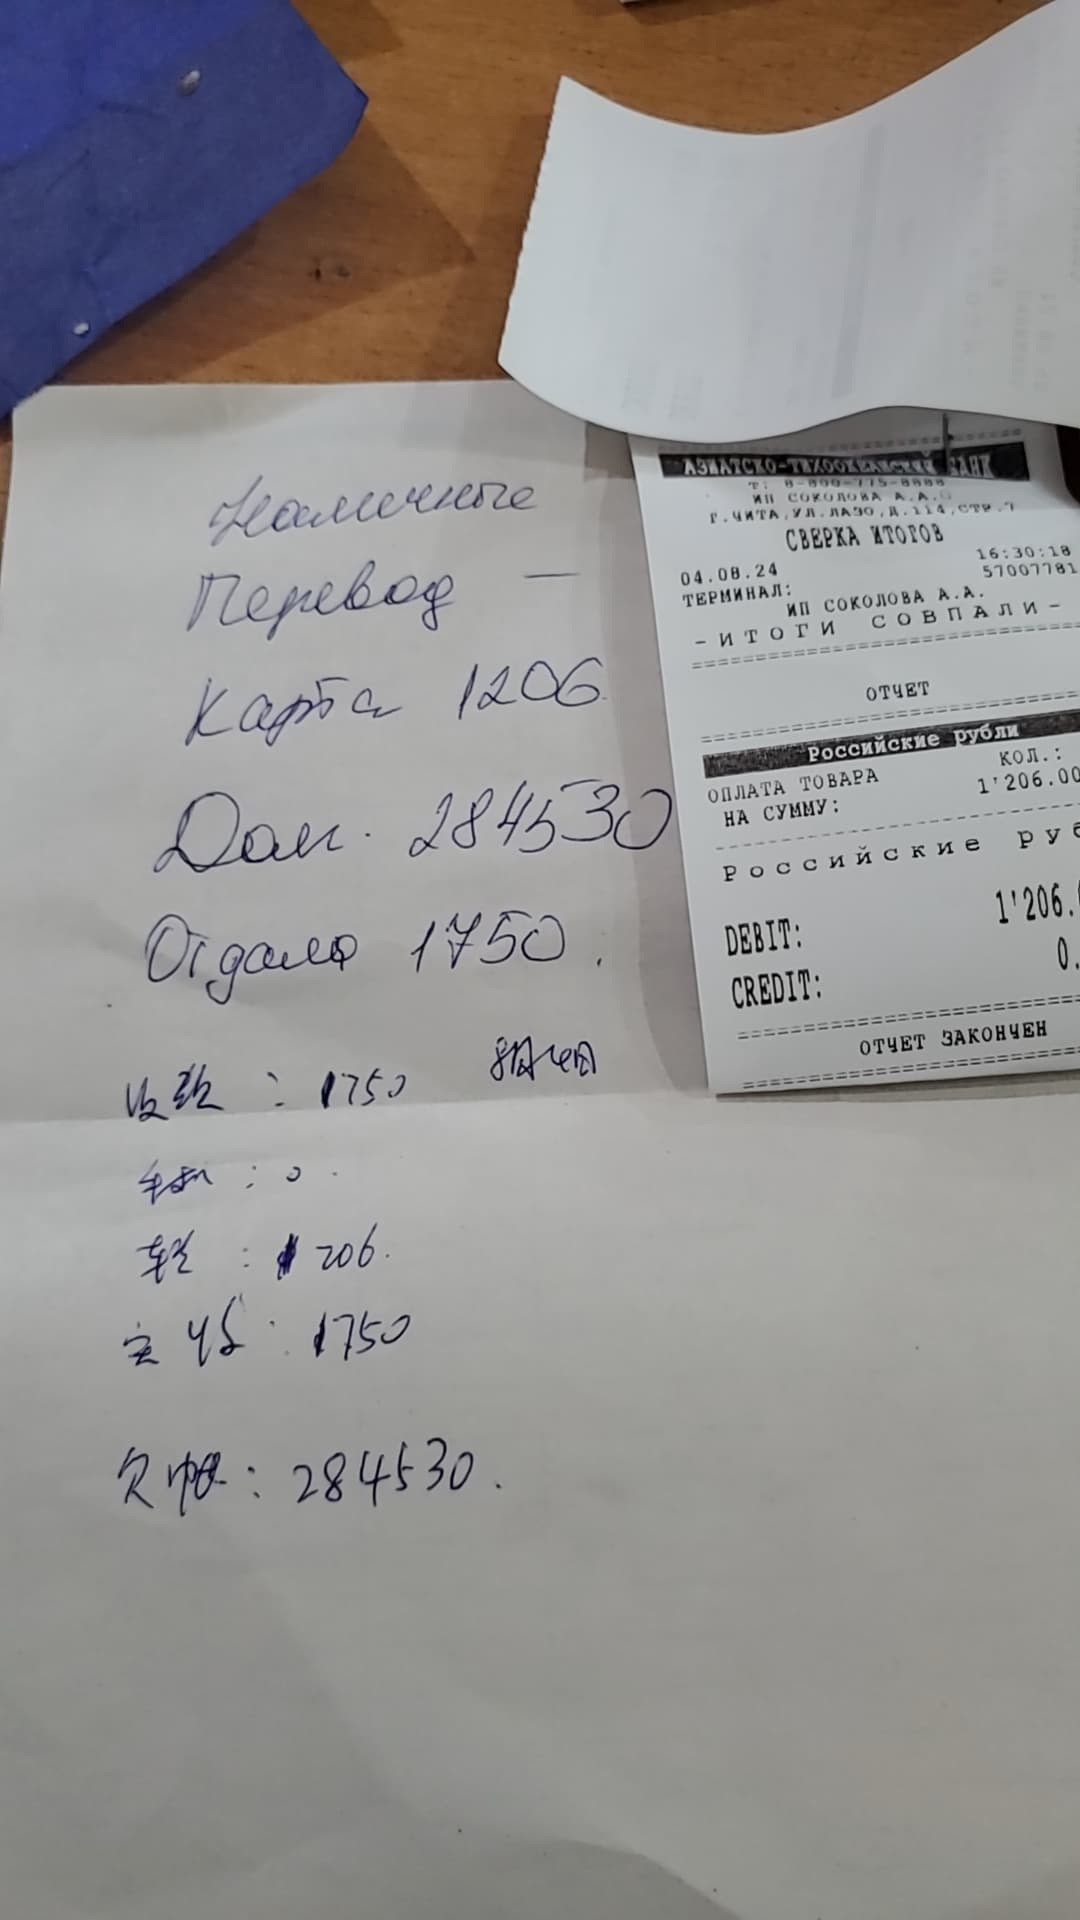 Наличные
Перевод —
Карта 1206
Долг. 284530
Отдала 1750.
收款: 1750 8月4日
手机: 0.
转: 206.
实收: 1750
欠帐: 284530.
АЗИАТСКО-ТИХООКЕАНСКИЙ БАНК
Т: 8-800-775-8888
ИП СОКОЛОВА А.А.
Г.ЧИТА,УЛ.ЛАЗО,Д.114,СТР.7
СВЕРКА ИТОГОВ
04.08.24 16:30:18
ТЕРМИНАЛ: 57007781
ИП СОКОЛОВА А.А.
-ИТОГИ СОВПАЛИ-
ОТЧЕТ
Российские рубли
ОПЛАТА ТОВАРА КОЛ.:
НА СУММУ: 1'206.00
Российские руб
DEBIT: 1'206.
CREDIT: 0.
ОТЧЕТ ЗАКОНЧЕН